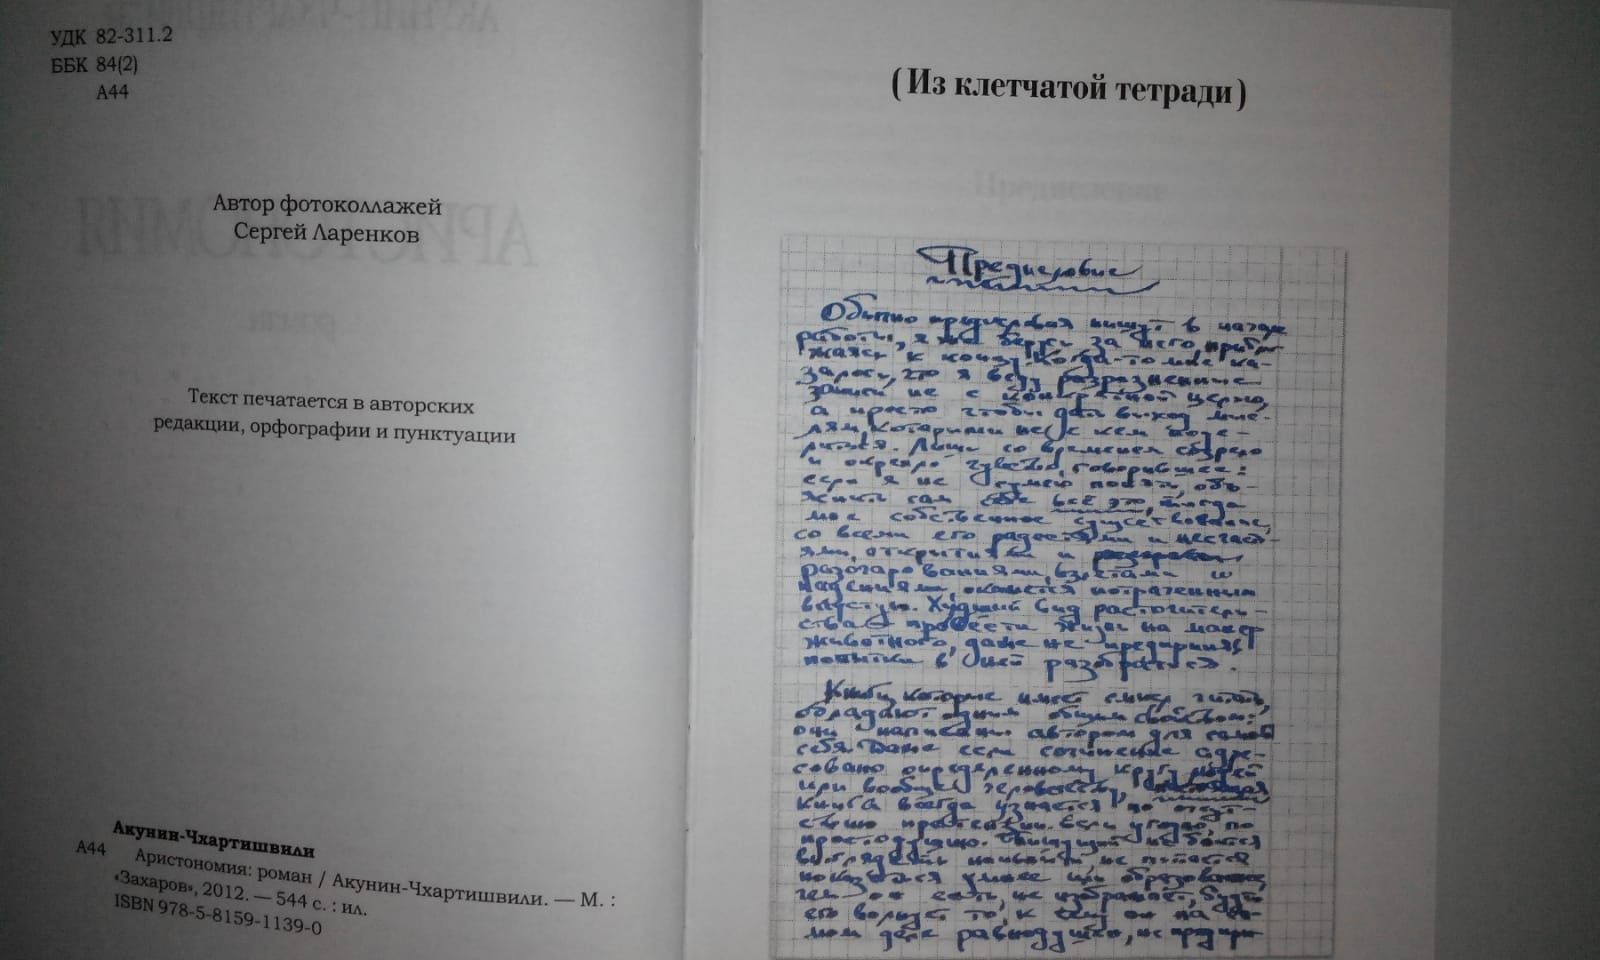 УДК 82-311.2
ББК 84(2)
А44
Автор фотоколлажей
Сергей Ларенков
Текст печатается в авторских
редакции, орфографии и пунктуации
Акунин-Чхартишвили
А44 Аристономия: роман / Акунин-Чхартишвили. — М. :
«Захаров», 2012. — 544 с. : ил.
ISBN 978-5-8159-1139-0
(Из клетчатой тетради)
Предисловие
Обычно предисловия пишут в начале
работы, я же берусь за него, прибли-
жаясь к концу. Когда-то мне ка-
залось, что я веду разрозненные
записи не с конкретной целью,
а просто чтобы дать выход мыс-
лям, которыми не с кем поде-
литься. Лишь со временем созрело
и окрепло чувство, говорившее:
если я не сумею понять, объ-
яснить сам себе всё это, тогда
мое собственное существование,
со всеми его радостями и несчасть-
ями, открытиями и
разочарованиями, взлетами и
падениями, окажется потраченным
впустую. Худший вид расточитель-
ства – провести жизнь на манер
животного, даже не предприняв
попытки в ней разобраться.
Книги, которые имеет смысл читать,
обладают одним общим свойством:
они написаны автором для самого
себя. Даже если сочинение адре-
совано определенному кругу людей
или вообще человечеству, настоящая
книга всегда узнается по отсут-
ствию претензии. Если угодно, по
простодушию. Пишущий не боится
выглядеть наивным, не пытается
показаться умнее или образованнее,
чем он есть, не изображает, будто
его волнует то, к чему он на са-
мом деле равнодушен, не